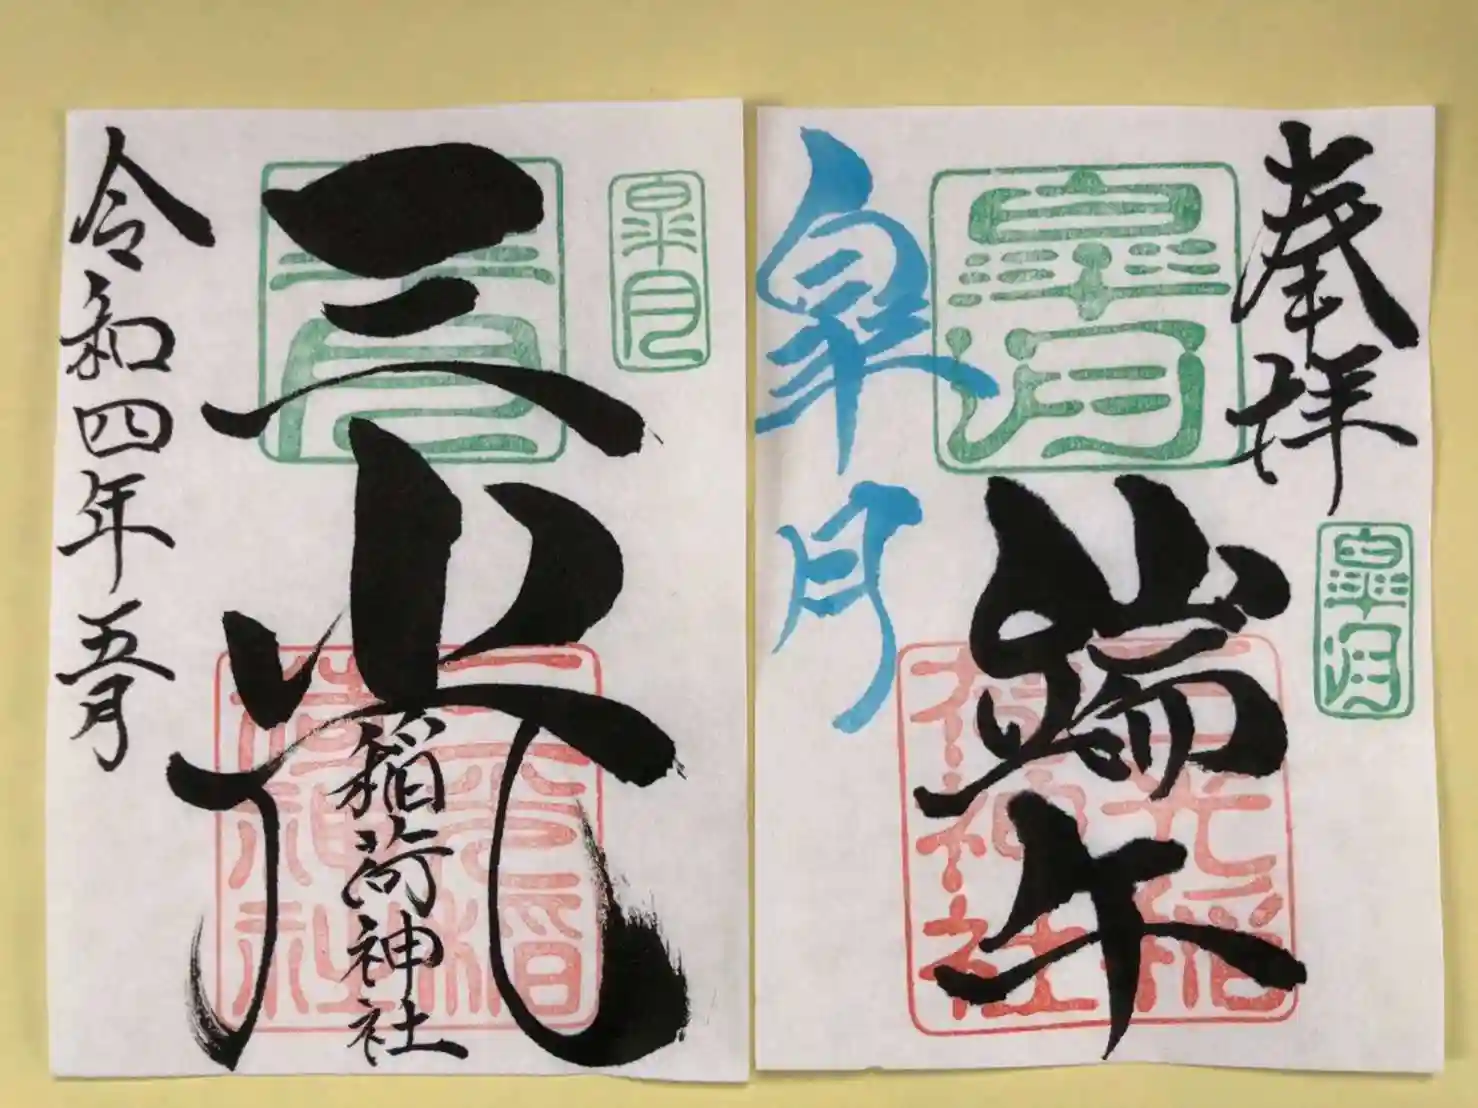 奉拝
皐月
皐月
端午
三光稲荷神社
皐月
皐月
三光
稲荷神社
令和四年五月